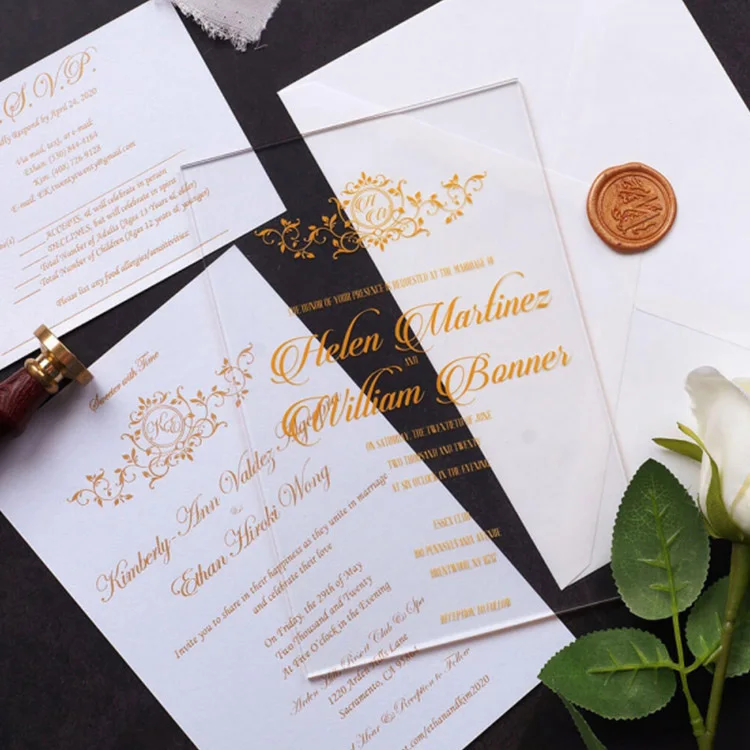 S.V.P.
Respond by April 24, 2020
Via mail, text, or e-mail
Ethan: (530) 844-4164
Kim: (408) 726-8128
E-mail: EK.twentytwenty@gmail.com
ACCEPTS, will celebrate in person
DECLINES, but will celebrate in spirit
Total Number of Adults (Ages 13 Years
Total Number of Children (Ages 12 years
Please list any food allergies/sensitivities:
Sweeter with Time
Kimberly-Ann Valdez
&
Ethan Hiroki Wong
Invite you to share in their happiness as they unite in marriage
and celebrate their love
On Friday, the 29th of May
Two Thousand and Twenty
At Five O'clock in the Evening
Arden Hills Resort Club & Spa
1220 Arden Hills Lane
Sacramento, CA
Reception to Follow
THE HONOR OF YOUR PRESENCE IS REQUESTED AT THE MARRIAGE OF
Helen Martinez
AND
William Bonner
ON SATURDAY, THE TWENTIETH OF JUNE
TWO THOUSAND AND TWENTY
AT SIX O'CLOCK IN THE EVENING
ESSEX CLUB
PENNSYLVANIA AVENUE
BRENTWOOD, NY
RECEPTION TO FOLLOW
W